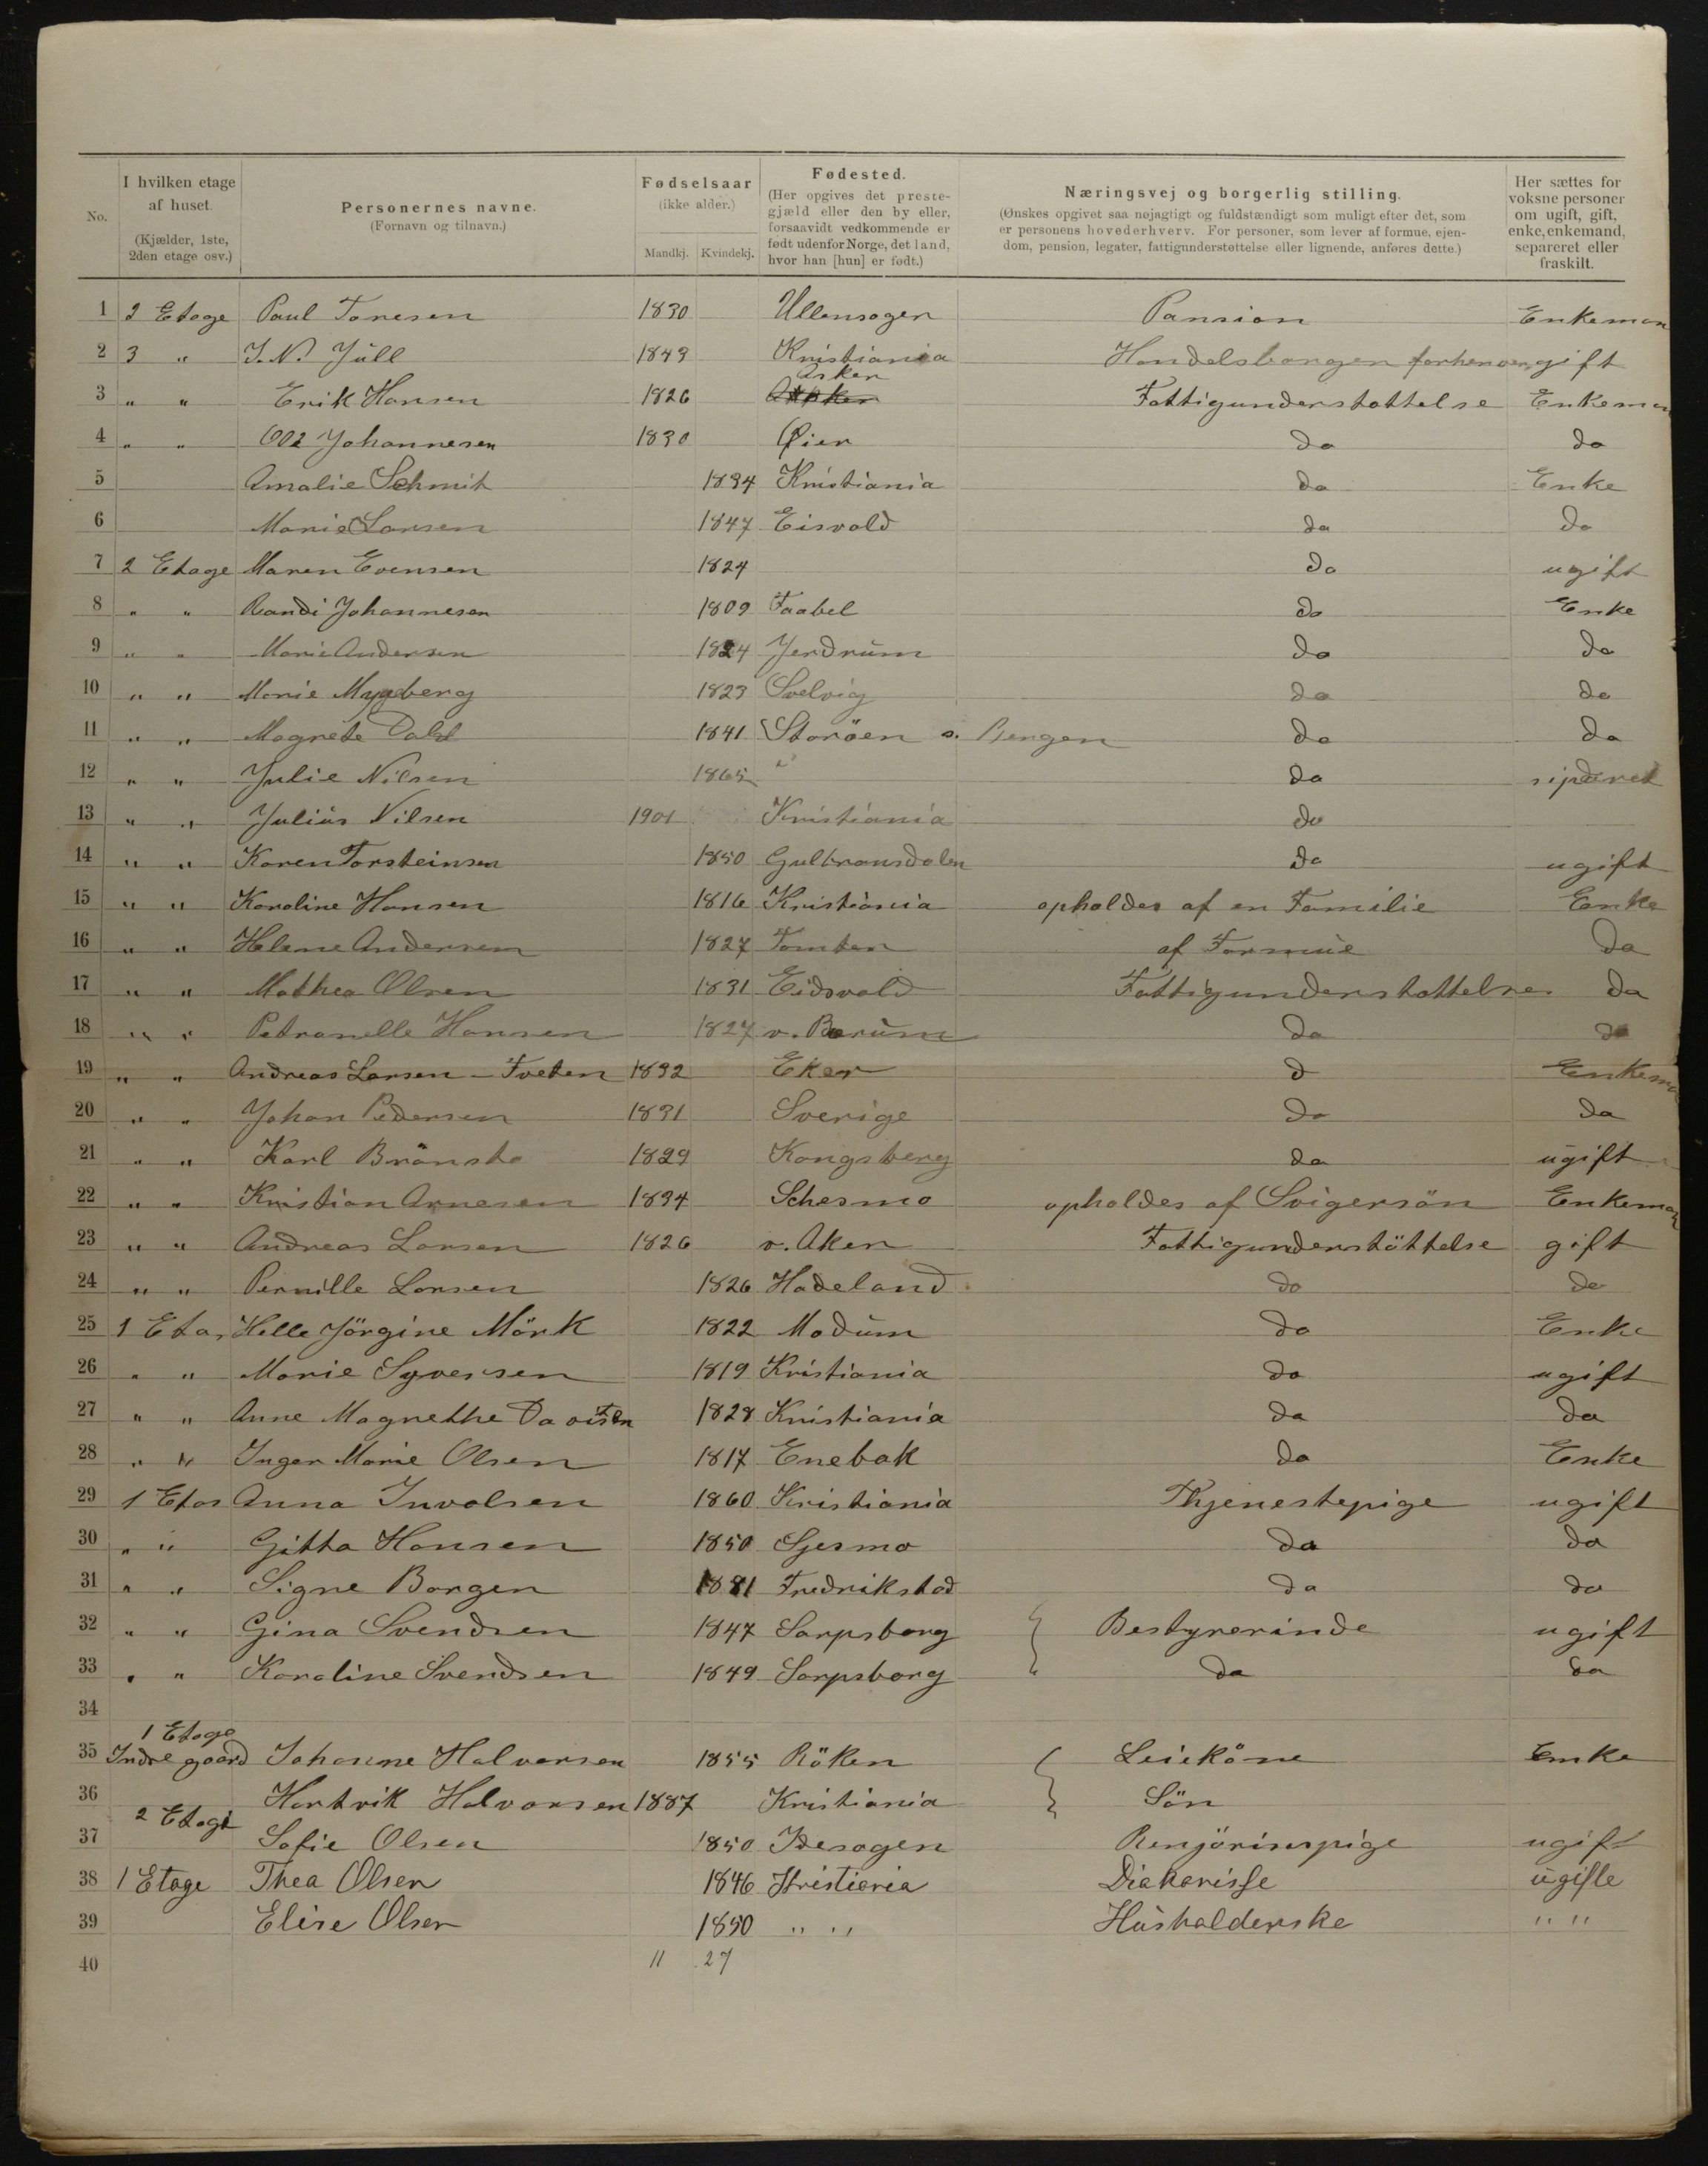 No. | I hvilken etage af huset. (Kjælder, 1ste, 2den etage osv.) | Personernes navne. (Fornavn og tilnavn.) | Fødselsaar (ikke alder.) Mandkj. Kvindekj. | Fødested. (Her opgives det prestegjæld eller den by eller, forsaavidt vedkommende er født udenfor Norge, det land, hvor han [hun] er født.) | Næringsvej og borgerlig stilling. (Ønskes opgivet saa nøjagtigt og fuldstændigt som muligt efter det, som er personens hovederhverv. For personer, som lever af formue, ejendom, pension, legater, fattigunderstøttelse eller lignende, anføres dette.) | Her sættes for voksne personer om ugift, gift, enke, enkemand, separeret eller fraskilt.
1 2 Etage Paul Tonesen 1830 Ullensager Pansion Enkeman
2 3 " J. N. Jüll 1843 Kristiania Handelsborger gift
3 " " Erik Hansen 1826 Asker Fattigunderstøttelse Enkeman
4 " " Johannesen 1830 Øier do do
5 Amalie Schmit 1834 Kristiania do Enke
6 Marie Larsen 1847 Eisvold do do
7 2 Etage Maren Evensen 1824 do ugift
8 " " Randi Johannesen 1809 Faabel do Enke
9 " " Marie Andersen 1824 Jerdrum do do
10 " " Marie Mygberg 1823 Svelvig do do
11 " " Magrete Dahl 1841 Storöen v. Bergen do do
12 " " Julie Nilsen 1865 " do siperet
13 " " Juliüs Nilsen 1901 Kristiania do
14 " " Karen Torsteinsen 1850 Gulbransdalen do ugift
15 " " Karoline Hansen 1816 Kristiania opholdes af en Familie Enke
16 " " Helene Andersen 1827 Tomten af Formüe do
17 " " Mathea Olsen 1831 Eidsvold Fattigunderstøttelse do
18 " " Petranelle Hansen 1827 v. Bærüm do do
19 " " Andreas Larsen - Tveten 1832 Eker d Enkeman
20 " " Johan Pedersen 1831 Sverige do do
21 " " Karl Brånsto 1829 Kongsberg do ugift
22 " " Kristian Arnesen 1834 Schesmo opholdes af Svigersön Enkeman
23 " " Andreas Larsen 1826 v. Aker Fattigunderstöttelse gift
24 " " Pernille Larsen 1826 Hadeland do do
25 1 Eta. Helle Jörgine Mörk 1822 Modüm do Enke
26 " " Marie Syversen 1819 Kristiania do ugift
27 " " Anne Magrethe Davisen 1828 Kristiania do do
28 " " Inger Marie Olsen 1817 Enebak do Enke
29 1 Etas Anna Invalsen 1860 Kristiania Thjenestepige ugift
30 " " Gitta Hansen 1850 Sjesmo do do
31 " " Signe Borgen 1881 Fredrikstad do do
32 " " Gina Svendsen 1847 Sarpsborg Bestyrerinde ugift
33 " " Karoline Svendsen 1849 Sarpsborg do do
34
1 Etage
35 Indre gaard Johanne Halvorsen 1855 Röken Leiekåne Enke
36 Hartvik Halvorsen 1887 Kristiania Sön
2 Etage
37 Sofie Olsen 1850 Idesogen Renjörinspige ugift
38 1 Etage Thea Olsen 1846 Kristiania Diakonisse ugifte
39 Elise Olsen 1850 " " Hüsholderske " "
40 11 27